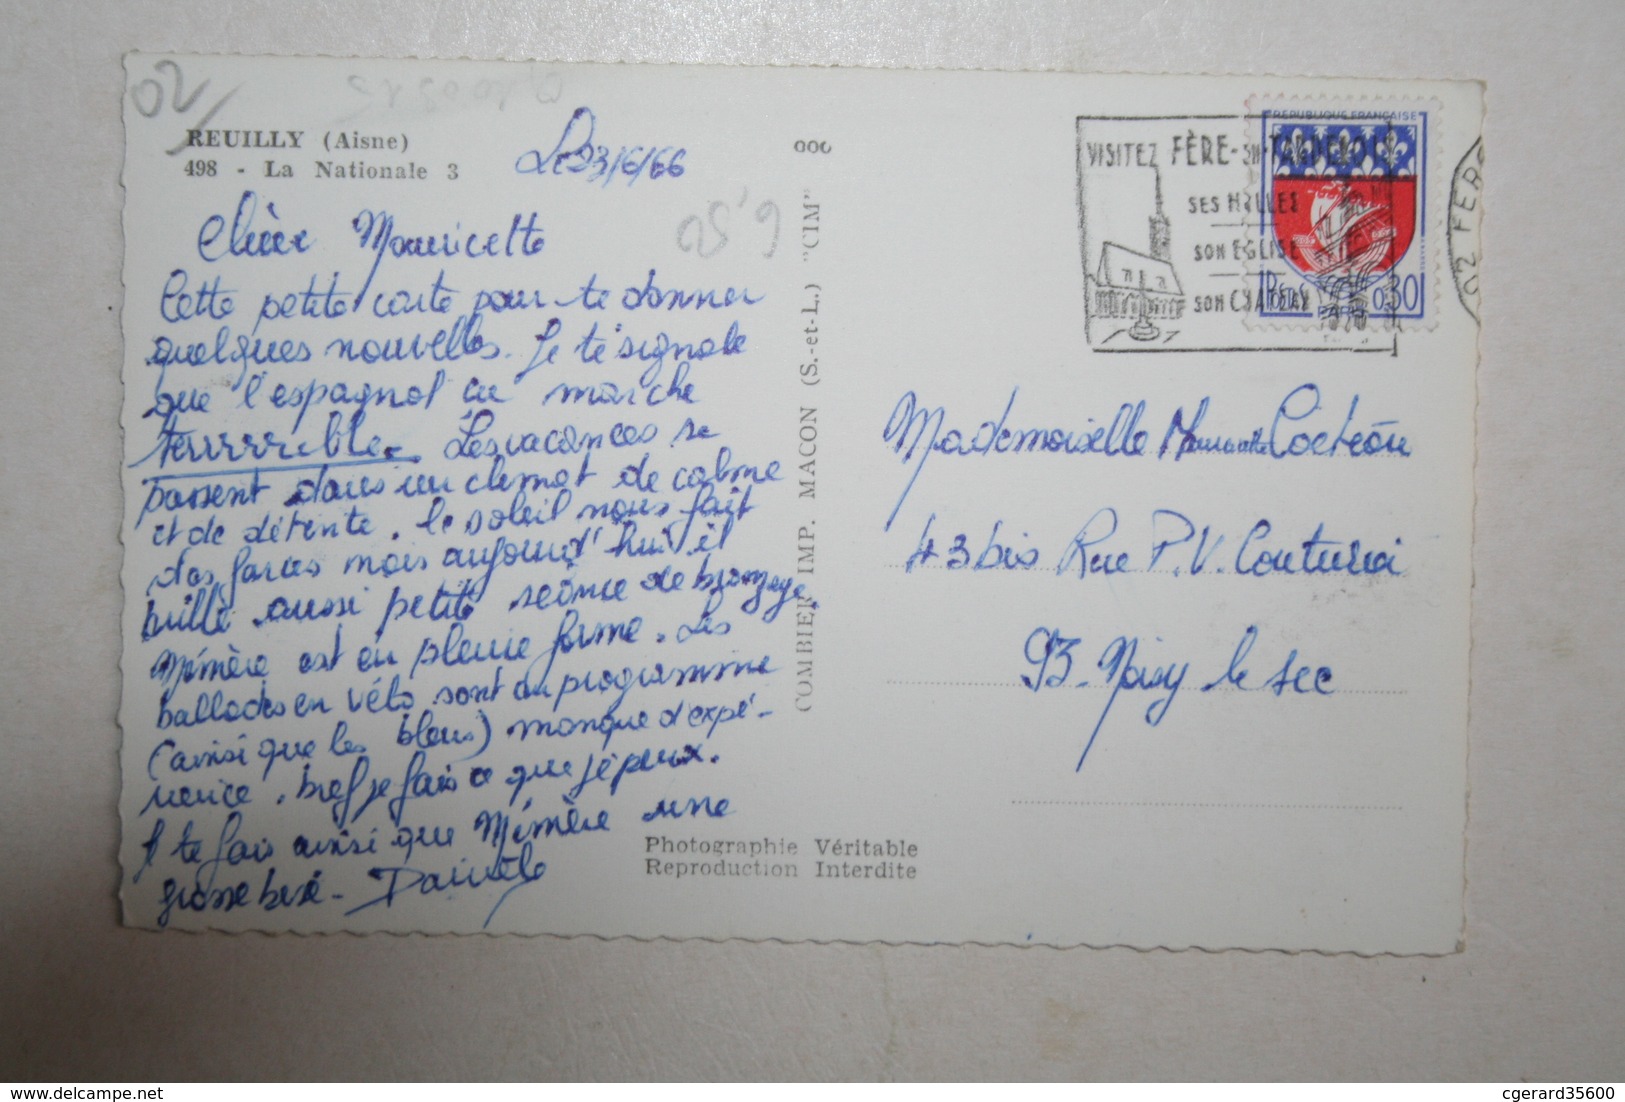 02
REUILLY (Aisne)
498 - La Nationale 3
Le 23/6/66
Chère Mauricette
Cette petite carte pour te donner
quelques nouvelles. Je te signale
que l'espagnol ça marche
terrrrrible. Les vacances se
passent dans un climat de calme
et de détente. Le soleil nous fait
des farces mais aujourd'hui il
brille aussi petite séance de bronzage.
Mémère est en pleine forme. Les
ballades en vélo sont au programme
(ainsi que les bleus) manque d'expé-
rience. bref je fais ce que je peux.
Je te fais ainsi que Mémère une
grosse bise - Danièle
COMBIER IMP. MACON (S.-et-L.) "CIM"
Photographie Véritable
Reproduction Interdite
VISITEZ FÈRE-EN-TARDENOIS
SES HALLES
SON EGLISE
SON CHATEAU
REPUBLIQUE FRANÇAISE
POSTES 0,30
PARIS
02 FERE
Mademoiselle Mauricette
43 bis Rue P.V. Couturier
93 - Noisy le sec
delcampe.net
cgerard35600